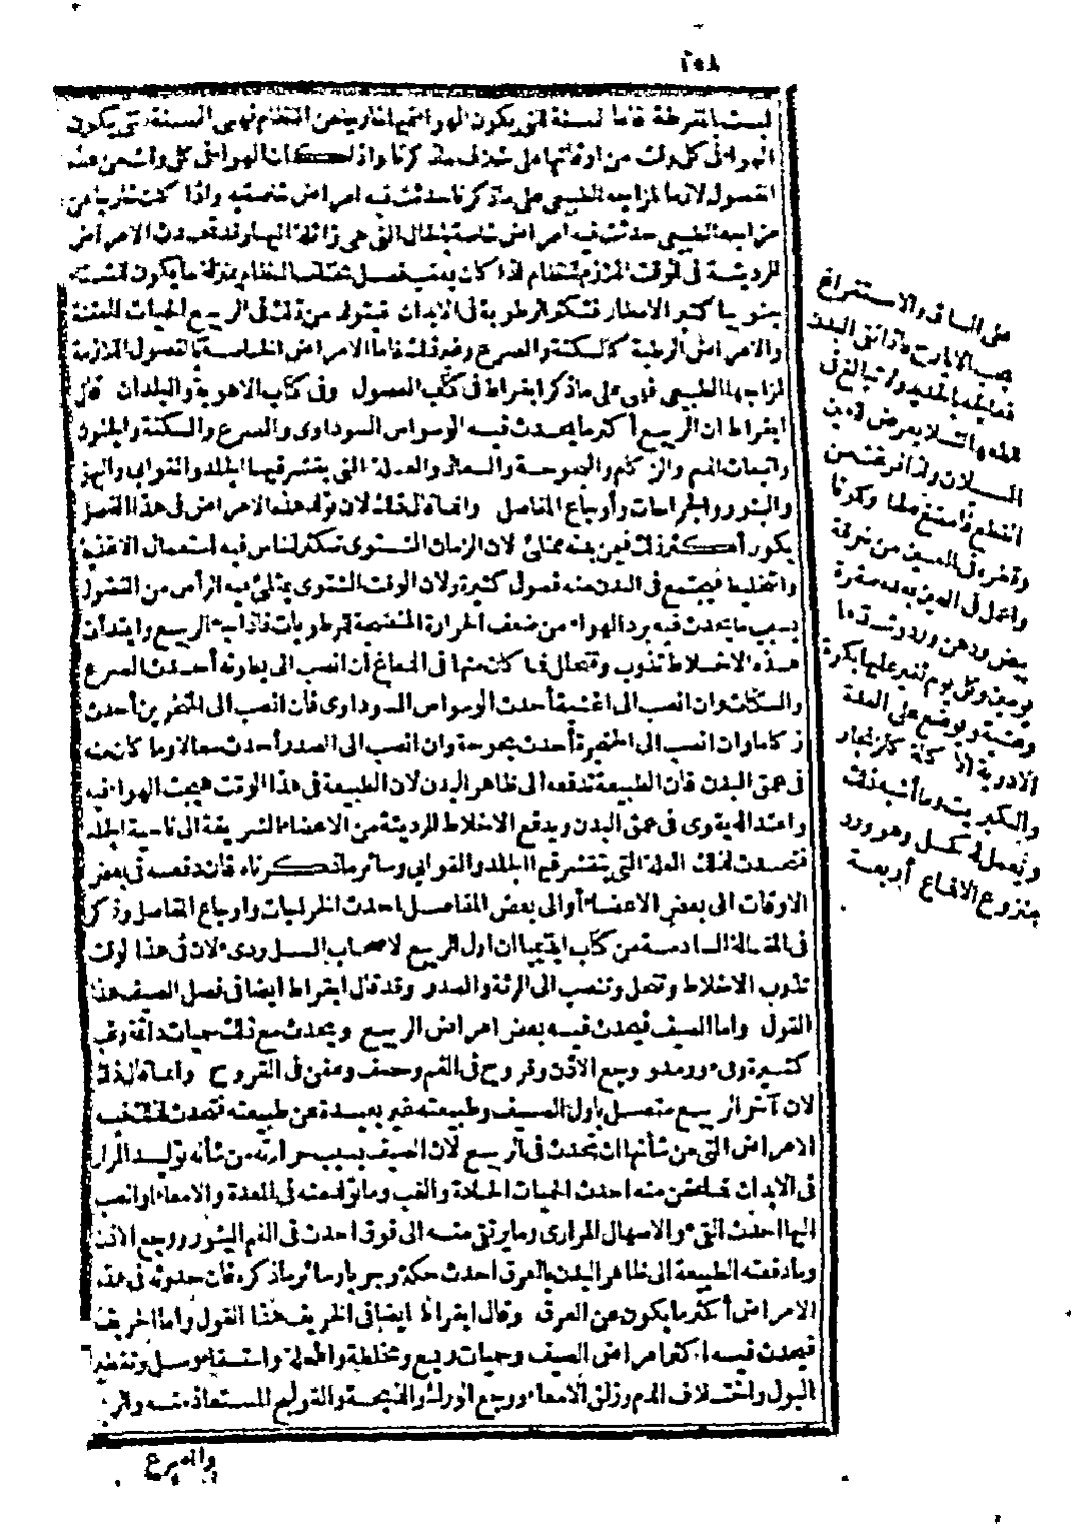 ٢٥٨
ليست بالمفرطة فاما السنة التي يكون الهواء فيها خارجا عن النظام فهي السنة التي يكون
الهواء في كل وقت من اوقاتها على خلاف ما ذكرنا واذا كان الهواء في كل واحد من هذه
الفصول لازما لمزاجه الطبيعي على ما ذكرنا حدثت فيه امراض خاصته واذا كانت خارجا عن
مزاجه الطبيعي حدثت فيه امراض خاصة بالحال التي هي زائلة اليها وقد تحدث الامراض
الرديئة في الوقت اللازم للنظام اذا كان بعقب فصل مخالف للنظام بمنزلة ما يكون الشتاء
جنوبيا كثير الامطار فتكثر الرطوبة في الابدان فيتولد من ذلك في الربيع الحميات العفنة
والامراض الرطبة كالسكتة والصرع وغير ذلك فاما الامراض الخاصة بالفصول اللازمة
لمزاجها الطبيعي فهي على ما ذكر ابقراط في كتاب الفصول وفي كتاب الاهوية والبلدان قال
ابقراط ان الربيع أكثر ما يحدث فيه الوسواس السوداوى والصرع والسكتة والجنون
وانبعاث الدم والزكام والبحوحة والسعال والعلة التي يتقشر فيها الجلد والقوابي والبهق
والبثور والجراحات وأوجاع المفاصل وانما قال ذلك لان تولد هذه الامراض في هذا الفصل
يكون أكثر ذلك فيمن بدنه ممتلئ لان الزمان الشتوى تكثر الناس فيه استعمال الاغذية
والتخليط فيجتمع في البدن منه فضول كثيرة ولان الوقت الشتوى يمتلئ فيه الرأس من الفضول
بسبب ما يحدث فيه برد الهواء من ضعف الحرارة المنضجة للرطوبات فاذا جاء الربيع وابتدأت
هذه الاخلاط تذوب وتتحلل فما كان منها في الدماغ ان انصب الى بطونه أحدث الصرع
والسكات وان انصب الى اغشيته أحدث الوسواس السوداوى فان انصب الى المنخرين أحدث
زكاما وان انصب الى الحنجرة أحدث بحوحة وان انصب الى الصدر أحدث سعالا وما كانت
في عمق البدن فان الطبيعة تدفعه الى ظاهر البدن لان الطبيعة في هذا الوقت بحيث الهواء فيه
واعتداله يقوى في عمق البدن ويدفع الاخلاط الرديئة من الاعضاء الشريفة الى ناحية الجلد
فتحدث لذلك العلة التي يتقشر فيها الجلد والقوابي وسائر ما ذكرناه فان دفعته في بعض
الاوقات الى بعض الاعضاء أو الى بعض المفاصل احدث الخراجات واوجاع المفاصل وذكر
في المقالة السادسة من كتاب ابيذيميا ان اول الربيع لاصحاب السل ردىء لان في هذا الوقت
تذوب الاخلاط وتتحلل وتنصب الى الرئة والصدر وقد قال ابقراط ايضا في فصل الصيف هذا
القول واما الصيف فيحدث فيه بعض امراض الربيع ويحدث مع ذلك حميات دائمة وغب
كثيرة وقىء ورمد ووجع الاذن وقروح في الفم وحصف وعفن في القروح وانما قال ذلك
لان آخر الربيع متصل باول الصيف وطبيعته غير بعيدة عن طبيعته فتحدث لذلك فيه
الامراض التي من شأنها ان تحدث في الربيع لان الصيف بسبب حرارته من شأنه توليد المرار
في الابدان فما عفن منه احدث الحميات الحادة والغب وما تولد منه في المعدة والامعاء او انصب
اليها احدث القىء والاسهال المرارى وما يرتقي منه الى فوق احدث في الفم البثور ووجع الاذن
وما دفعته الطبيعة الى ظاهر البدن بالعرق احدث حكة وجربا وسائر ما ذكره فان حدوث هذه
الامراض أكثر ما يكون عن العرق وقال ابقراط ايضا في الخريف هذا القول واما الخريف
فيحدث فيه اكثر امراض الصيف وحميات ربيع ومختلطة واطحلة واستسقاء وسل وتقطير
البول واختلاف الدم وزلق الامعاء ووجع الورك والذبحة والقولنج المستعاذ منه والربو
والصرع
على الساق والاستفراغ
بحب الايارج
فعالجه بالحديد
السبلان واذا فرغت من
القطع
وقطره في العين من خرقة
واجعل في العين بعده صفرة
بيض ودهن ورد وشدها
يومين وكل يوم تغير عليها بكرة
وعشية ويوضع على العلة
الادوية الاكالة كالزنجار
والكبريت وما أشبه ذلك
وتعمل له كحل وهو ورد
منزوع الاقماع أربعة